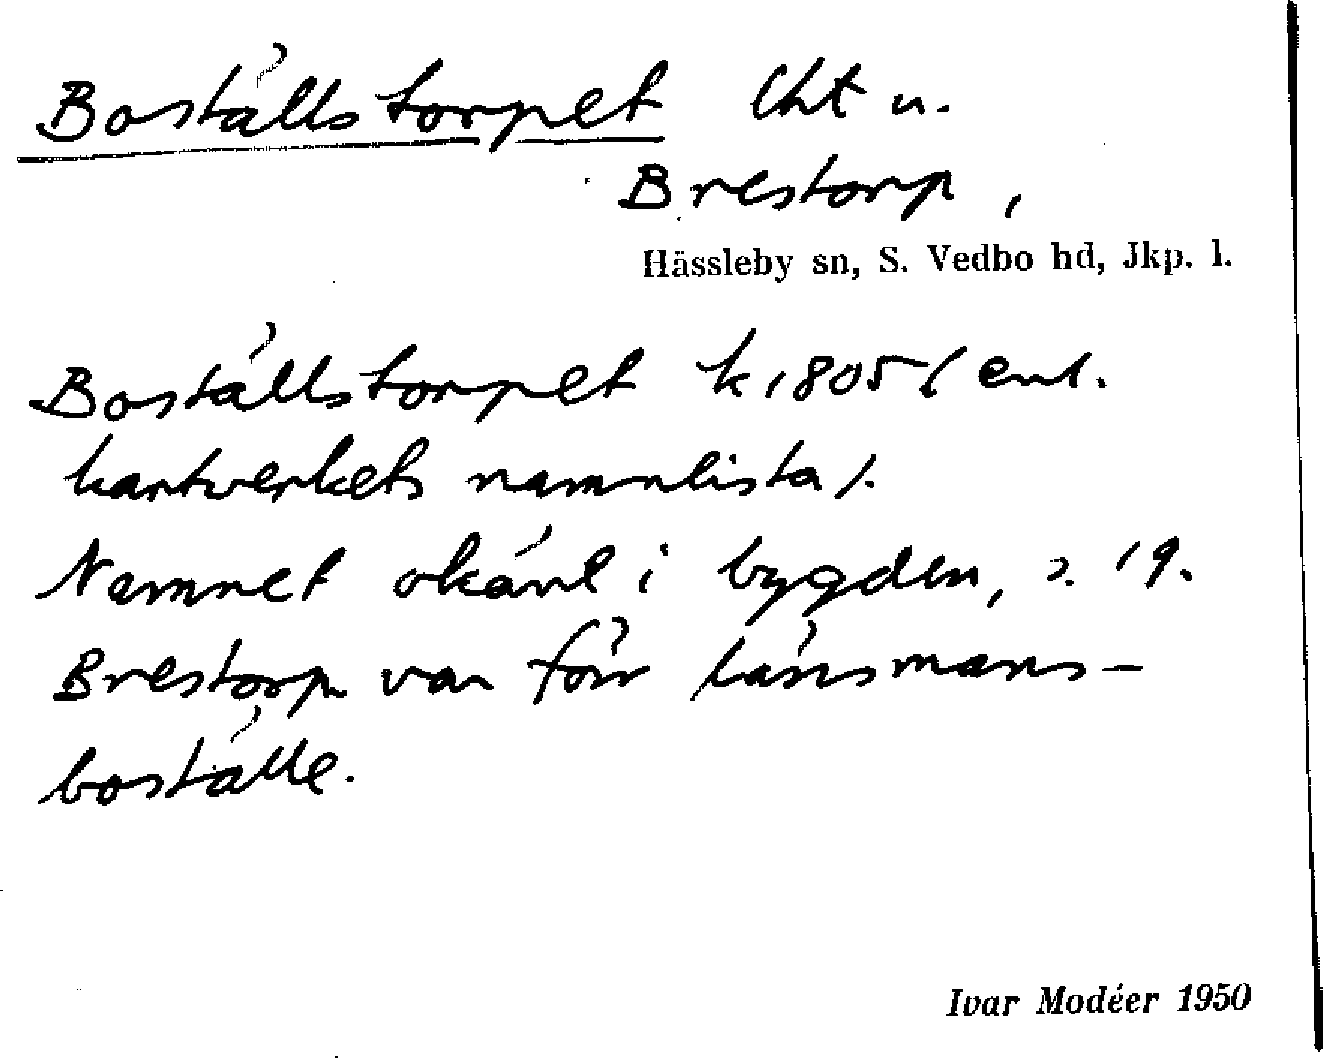 Boställstorpet lht u.
Brestorp,
Hässleby sn, S. Vedbo hd, Jkp. l.
Boställstorpet k 1805 (enl.
kartverkets namnlista).
Namnet okänt i bygden, s. 19.
Brestorp var förr länsmans-
boställe.
Ivar Modéer 1950